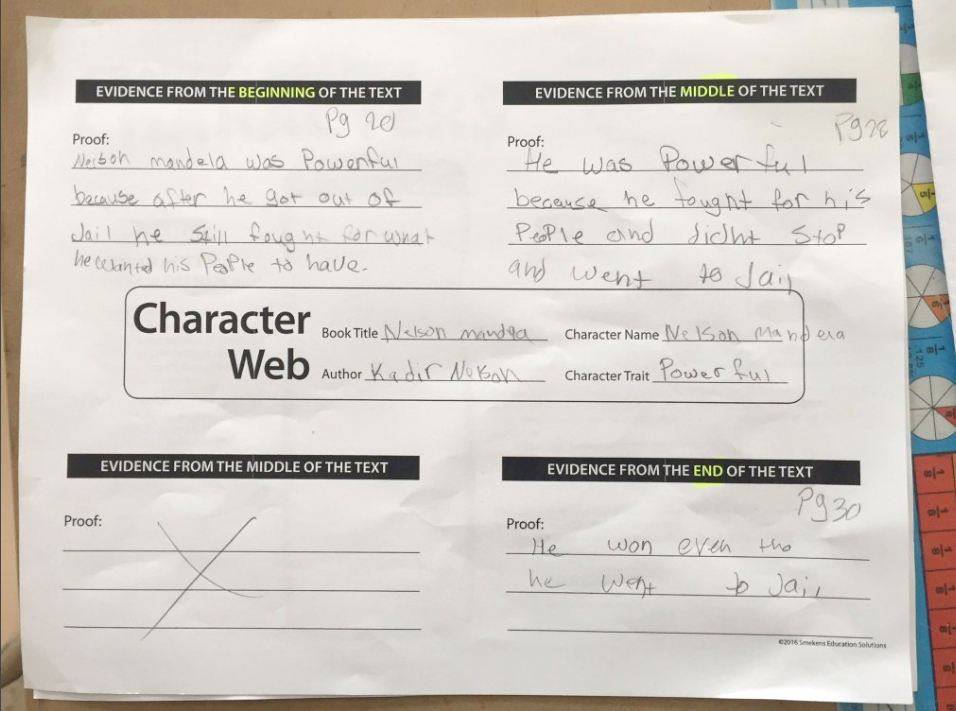 EVIDENCE FROM THE BEGINNING OF THE TEXT
Pg 20
Proof:
Nelson mandela was Powerful
because after he got out of
Jail he Still fought for what
he wanted his People to have.
EVIDENCE FROM THE MIDDLE OF THE TEXT
Pg 28
Proof:
He was Powerful
because he fought for his
People and didnt Stop
and went to Jail
Character Web
Book Title Nelson mandela
Author Kadir Nelson
Character Name Nelson Mandela
Character Trait Powerful
EVIDENCE FROM THE MIDDLE OF THE TEXT
Proof:
EVIDENCE FROM THE END OF THE TEXT
Pg 30
Proof:
He won even tho
he went to Jail
©2016 Smekens Education Solutions